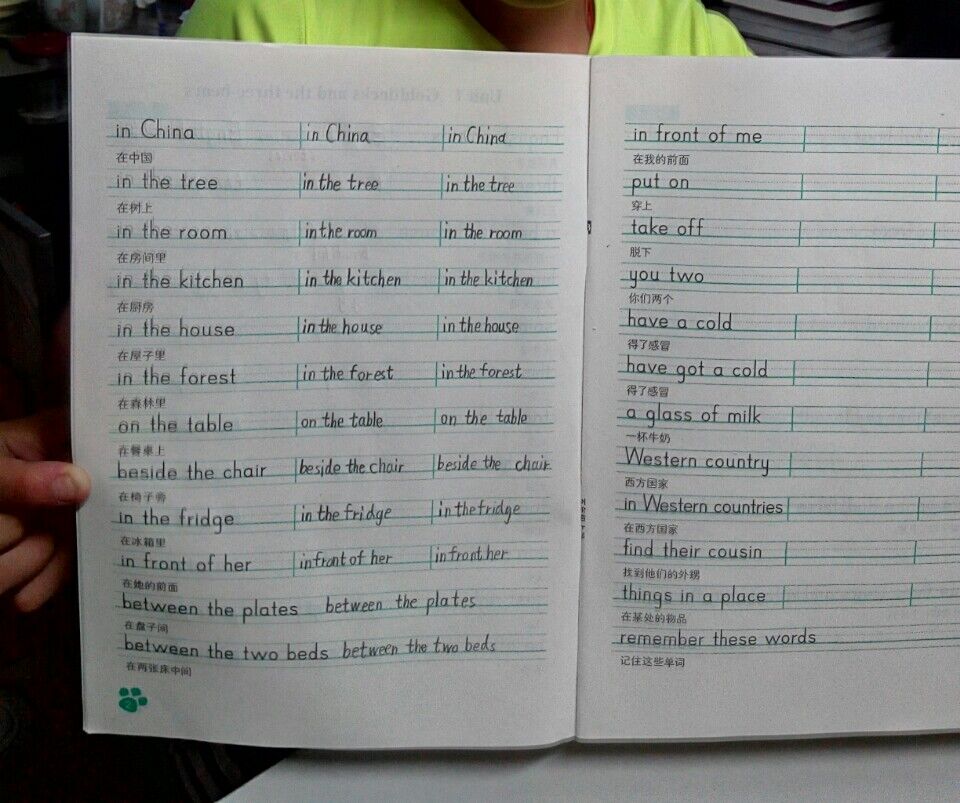 in China in China in China
在中国
in the tree in the tree in the tree
在树上
in the room in the room in the room
在房间里
in the kitchen in the kitchen in the kitchen
在厨房
in the house in the house in the house
在屋子里
in the forest in the forest in the forest
在森林里
on the table on the table on the table
在餐桌上
beside the chair beside the chair beside the chair
在椅子旁
in the fridge in the fridge in the fridge
在冰箱里
in front of her in front of her in front her
在她的前面
between the plates between the plates
在盘子间
between the two beds between the two beds
在两张床中间
2
in front of me
在我的前面
put on
穿上
take off
脱下
you two
你们两个
have a cold
得了感冒
have got a cold
得了感冒
a glass of milk
一杯牛奶
Western country
西方国家
in Western countries
在西方国家
find their cousin
找到他们的外甥
things in a place
在某处的物品
remember these words
记住这些单词